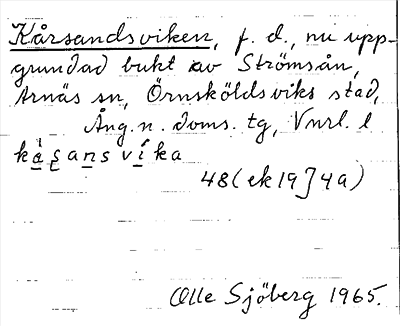 Kårsandsviken, f. d., nu upp-
grundad bukt av Strömsån,
Arnäs sn, Örnsköldsviks stad,
Ång. n. doms. tg, Vnrl. l
kåsansvika
48 (ek 19J4a)
Olle Sjöberg 1965.